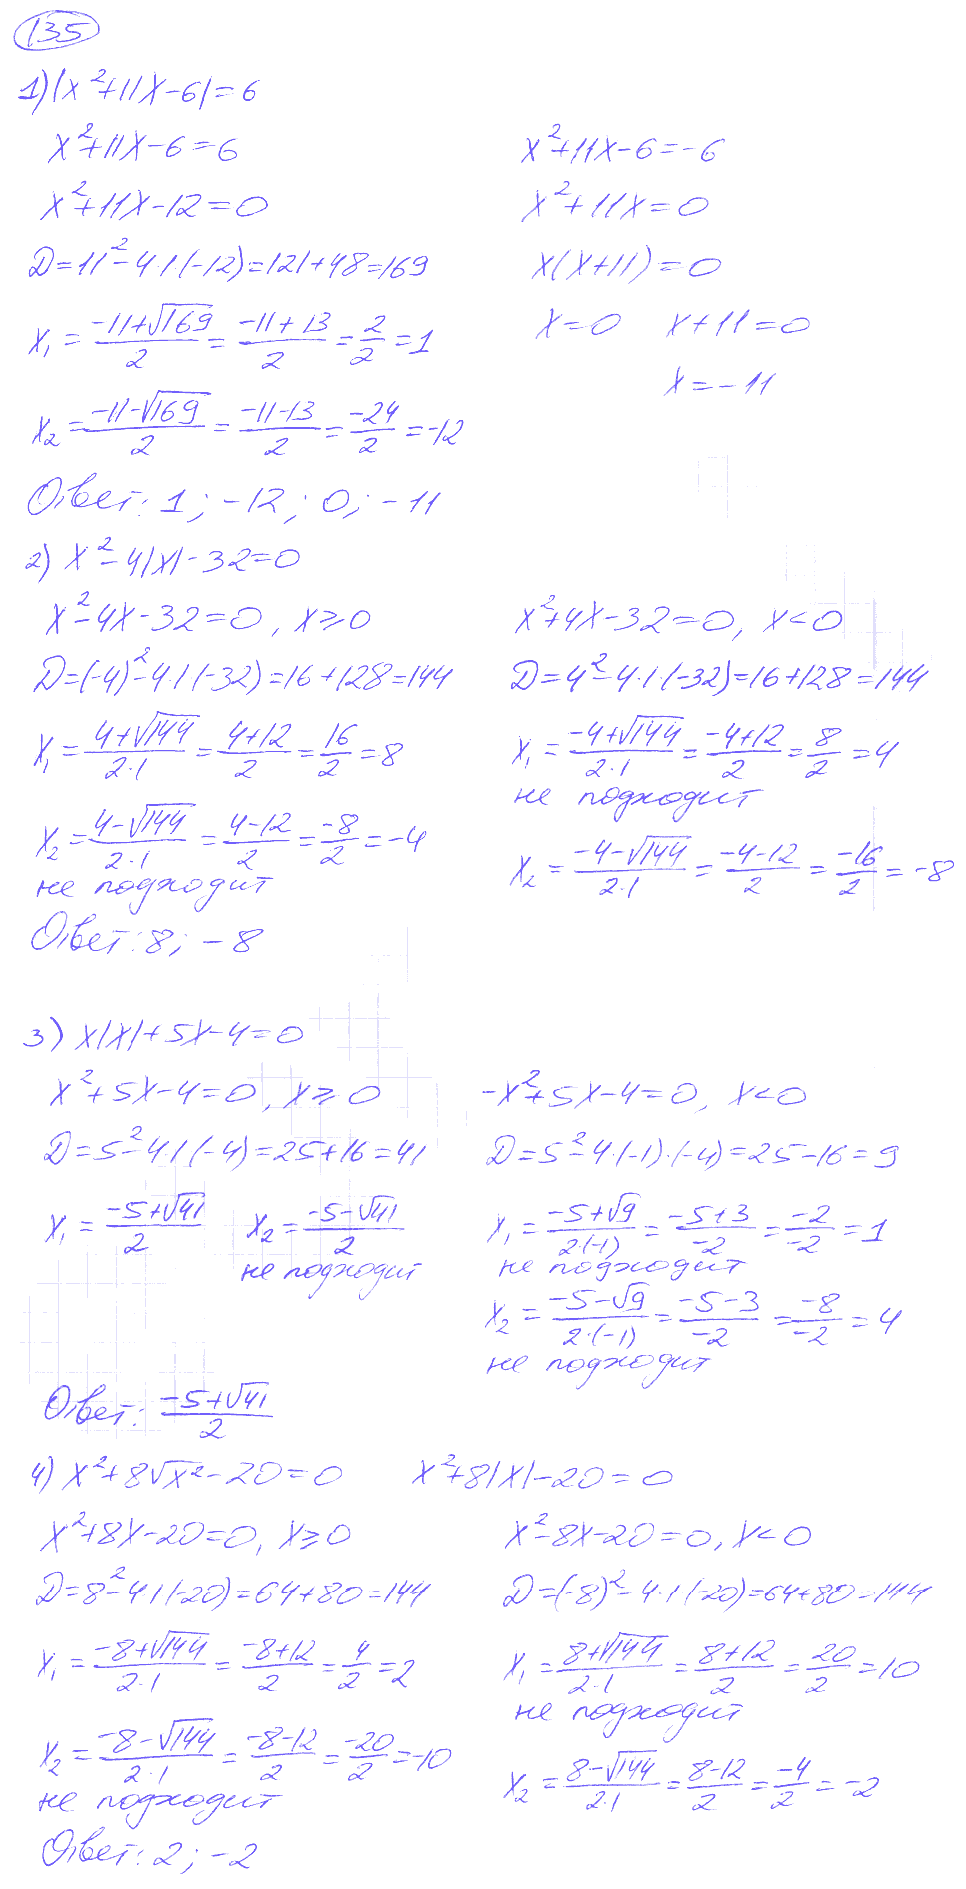 135
1) |x²+11x-6|=6
x²+11x-6=6
x²+11x-12=0
D=11²-4·1·(-12)=121+48=169
x₁ = (-11+√169)/2 = (-11+13)/2 = 2/2 = 1
x₂ = (-11-√169)/2 = (-11-13)/2 = -24/2 = -12
x²+11x-6=-6
x²+11x=0
x(x+11)=0
x=0 x+11=0
x=-11
Ответ: 1; -12; 0; -11
2) x²-4|x|-32=0
x²-4x-32=0, x≥0
D=(-4)²-4·1·(-32)=16+128=144
x₁ = (4+√144)/(2·1) = (4+12)/2 = 16/2 = 8
x₂ = (4-√144)/(2·1) = (4-12)/2 = -8/2 = -4
не подходит
x²+4x-32=0, x<0
D=4²-4·1·(-32)=16+128=144
x₁ = (-4+√144)/(2·1) = (-4+12)/2 = 8/2 = 4
не подходит
x₂ = (-4-√144)/(2·1) = (-4-12)/2 = -16/2 = -8
Ответ: 8; -8
3) x|x|+5x-4=0
x²+5x-4=0, x≥0
D=5²-4·1·(-4)=25+16=41
x₁ = (-5+√41)/2 x₂ = (-5-√41)/2
не подходит
-x²+5x-4=0, x<0
D=5²-4·(-1)·(-4)=25-16=9
x₁ = (-5+√9)/(2·(-1)) = (-5+3)/-2 = -2/-2 = 1
не подходит
x₂ = (-5-√9)/(2·(-1)) = (-5-3)/-2 = -8/-2 = 4
не подходит
Ответ: (-5+√41)/2
4) x²+8√x²-20=0 x²+8|x|-20=0
x²+8x-20=0, x≥0
D=8²-4·1·(-20)=64+80=144
x₁ = (-8+√144)/(2·1) = (-8+12)/2 = 4/2 = 2
x₂ = (-8-√144)/(2·1) = (-8-12)/2 = -20/2 = -10
не подходит
x²-8x-20=0, x<0
D=(-8)²-4·1·(-20)=64+80=144
x₁ = (8+√144)/(2·1) = (8+12)/2 = 20/2 = 10
не подходит
x₂ = (8-√144)/(2·1) = (8-12)/2 = -4/2 = -2
Ответ: 2; -2